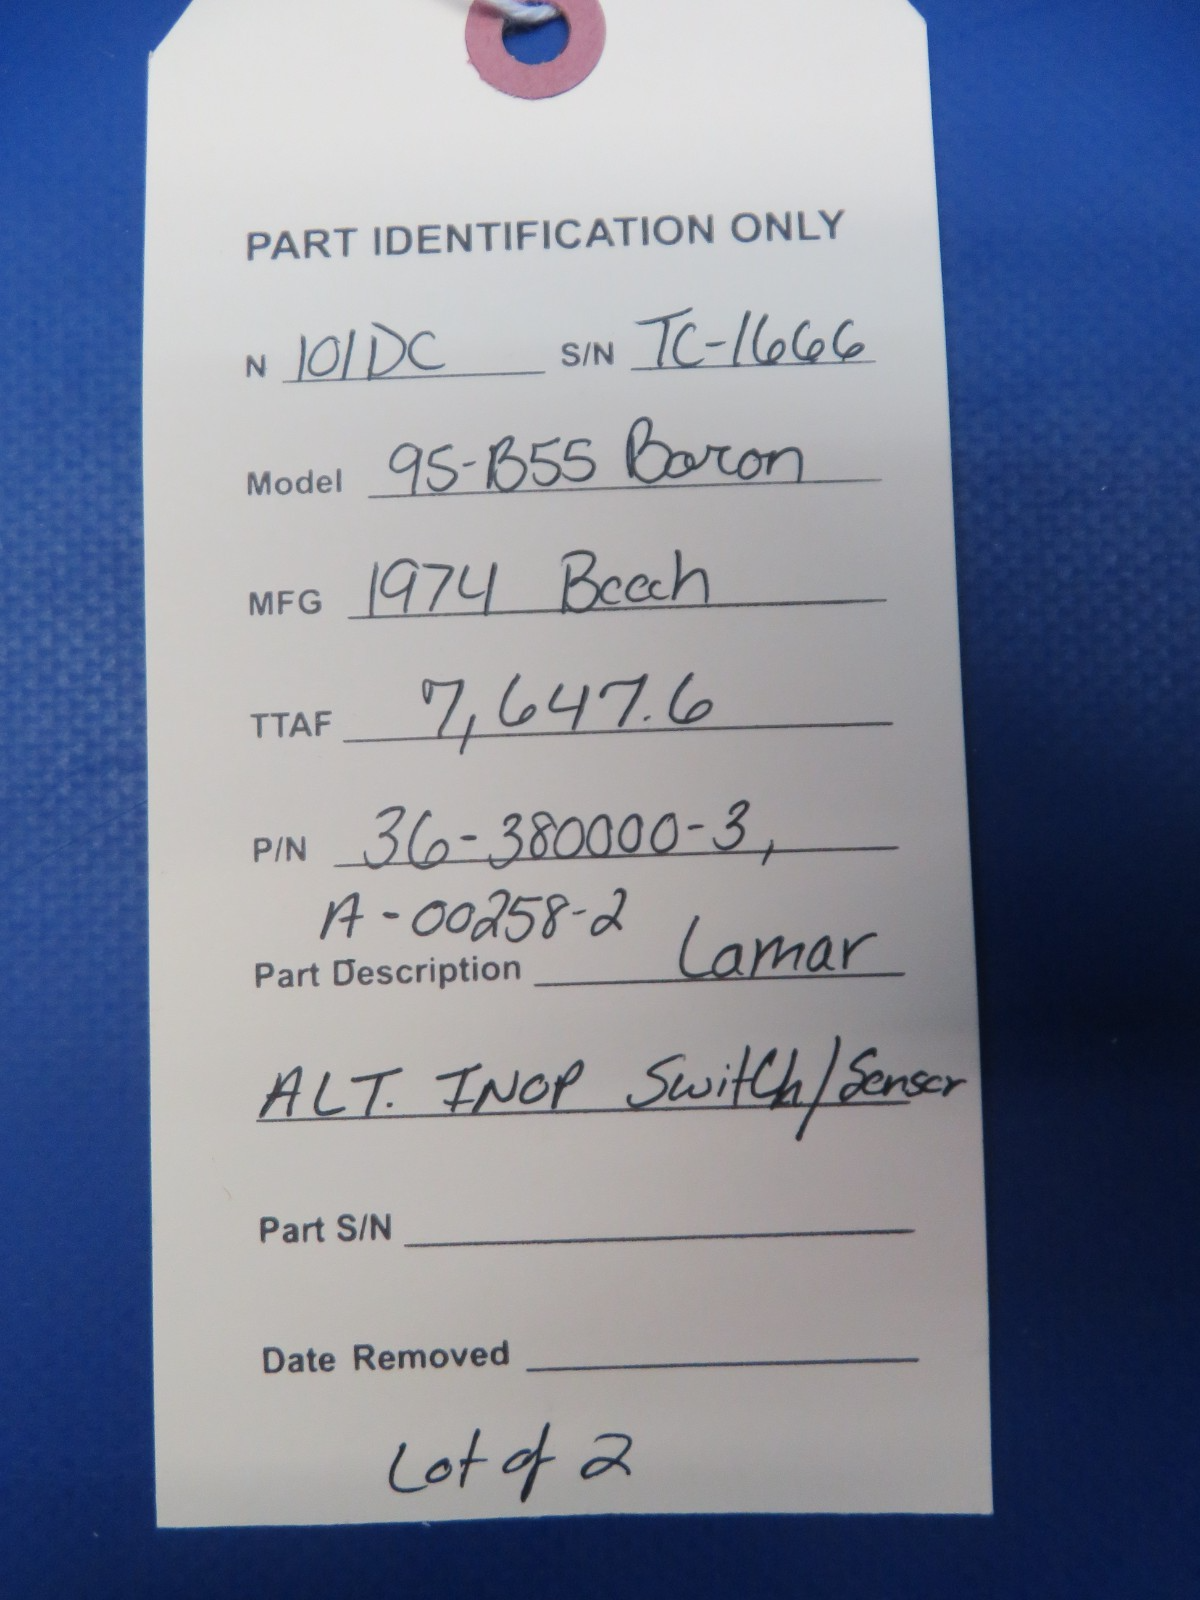 PART IDENTIFICATION ONLY
N 101DC S/N TC-1666
Model 95-B55 Baron
MFG 1974 Beech
TTAF 7,647.6
P/N 36-380000-3,
A-00258-2
Part Description Lamar
ALT. INOP Switch/Sensor
Part S/N
Date Removed
Lot of 2